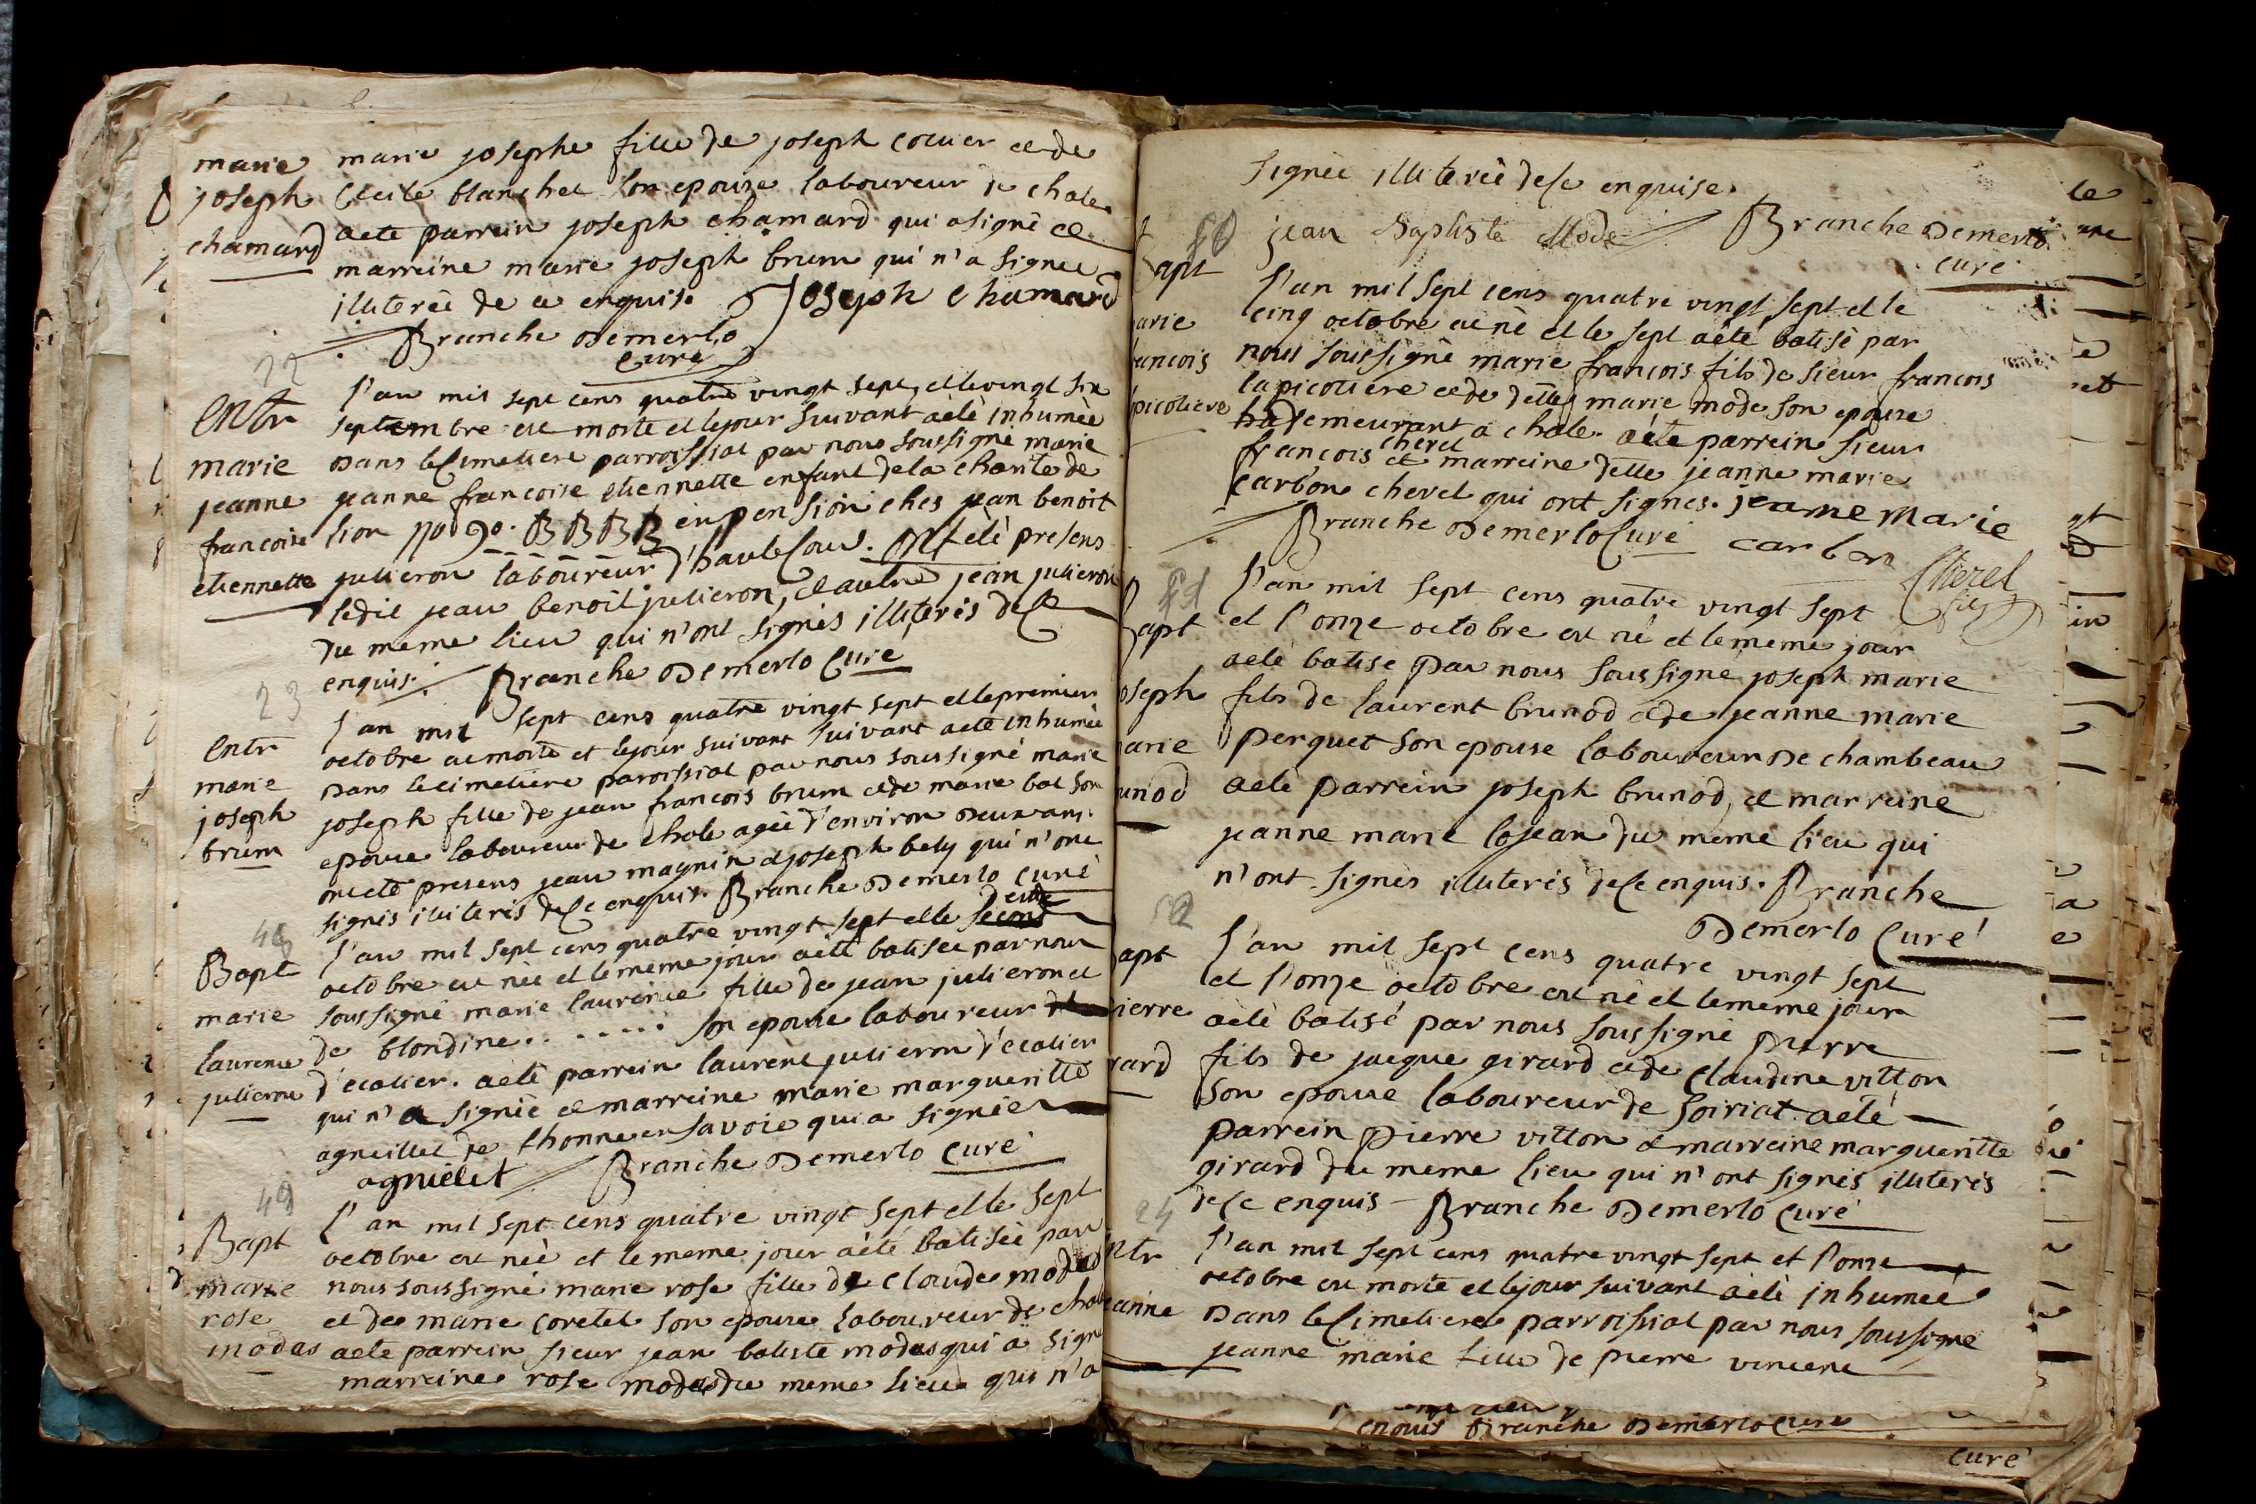 marie josephe fille de joseph couier et de
marie
joseph
chamard
Cecile blanchet son epouse laboureur de chale
aété parrein joseph chamard qui a signé et
marreine marie joseph brum qui n'a signée
illiterée de ce enquise Joseph Chamard
Branche Demerlo
Curé
22
Entr
marie
jeanne
francoise
etiennette
l'an mil sept cens quatre vingt sept, et le vingt six
septembre est morte et le jour suivant aété inhumée
Dans le Cimetiere parroissial par nous soussigné marie
jeanne francoise etiennette enfant de la charité de
lion no 90. B B B B en pension chés jean benoit
julieron laboureur d'hautecour. Ont eté presens
ledit jean benoit julieron, et autre jean julieron
du meme lieu qui n'ont signés illiterés de ce
enquis. Branche Demerlo Curé
23
Entr
marie
joseph
brum
l'an mil sept cens quatre vingt sept et le premier
octobre est morte et le jour suivant suivant aété inhumée
Dans le cimetiere paroissial par nous soussigné marie
joseph fille de jean francois brum et de marie bal son
epouse laboureur de chale agée d'environ Deux ans.
ont eté presens jean magnin et joseph bely qui n'ont
signés illiterés de ce enquis. Branche Demerlo Curé
48
Bapt
marie
laurence
julieron
l'an mil sept cens quatre vingt sept et le second
octobre est née et le meme jour aété batisée par nous
soussigné marie laurence fille de jean julieron et
de blondine . . . . . . . son epouse laboureur
d'ecolier. aété parrein laurent julieron d'ecolier
qui n'a signé et marreine marie marguerite
agnellet de thonne en Savoie qui a signée
agnielet Branche Demerlo Curé
49
Bapt
marie
rose
modas
l'an mil sept cens quatre vingt sept et le sept
octobre est née et le meme jour aété batisée par
nous soussigné marie rose fille de Claude modas
et de marie coretet son epouse laboureur de chale
aété parrein sieur jean batiste modas qui a signé
marreine rose modas du meme lieu qui n'a
signée illiterée de ce enquise.
jean Baptiste Mode Branche Demerlo
curé
50
Bapt
arie
ancois
picotiere
l'an mil sept cens quatre vingt sept et le
cinq octobre est né et le sept aété batisé par
nous soussigné marie françois fils de sieur francois
lapicotiere et de delle marie mode son epouse
demeurant a chale. aété parrein sieur
francois cheret et marreine delle jeanne marie
carbon cheret qui ont signés. jeanne Marie
Branche Demerlo Curé carbon Cherel
fils
51
Bapt
oseph
arie
unod
l'an mil sept cens quatre vingt sept
et l'onze octobre est né et le meme jour
aété batisé par nous soussigné joseph marie
fils de laurent brunod et de jeanne marie
perquet son epouse laboureur De chambeau
aété parrein joseph brunod, et marreine
jeanne marie lojean du meme lieu qui
n'ont signés illiterés de ce enquis. Branche
Demerlo Curé
52
apt
ierre
rard
l'an mil sept cens quatre vingt sept
et l'onze octobre est né et le meme jour
aété batisé par nous soussigné pierre
fils de jacque girard et de Claudine vitton
son epouse laboureur de soiriat aété
parrein pierre vitton et marreine marguerite
girard du meme lieu qui n'ont signés illiterés
de ce enquis – Branche Demerlo curé
24
ntr
eanne
l'an mil sept cens quatre vingt sept et l'onze
octobre est morte et le jour suivant aété inhumée
Dans le Cimetiere parroissial par nous soussigné
jeanne marie fille de pierre vincent
enquis Branche Demerlo Curé
curé